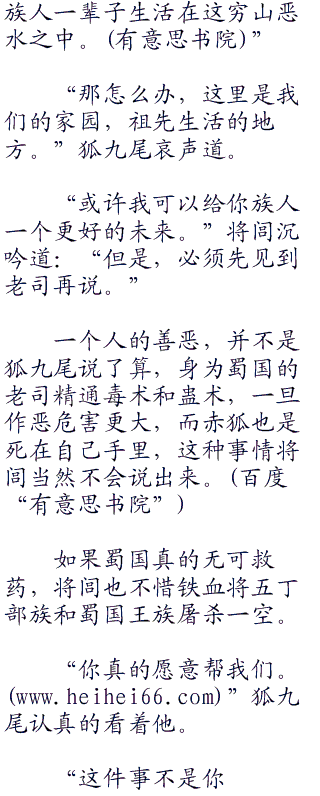 族人一辈子生活在这穷山恶
水之中。(有意思书院)”
“那怎么办，这里是我
们的家园，祖先生活的地
方。”狐九尾哀声道。
“或许我可以给你族人
一个更好的未来。”将闾沉
吟道：“但是，必须先见到
老司再说。”
一个人的善恶，并不是
狐九尾说了算，身为蜀国的
老司精通毒术和蛊术，一旦
作恶危害更大，而赤狐也是
死在自己手里，这种事情将
闾当然不会说出来。(百度
“有意思书院”)
如果蜀国真的无可救
药，将闾也不惜铁血将五丁
部族和蜀国王族屠杀一空。
“你真的愿意帮我们。
(www.heihei66.com)”狐九
尾认真的看着他。
“这件事不是你